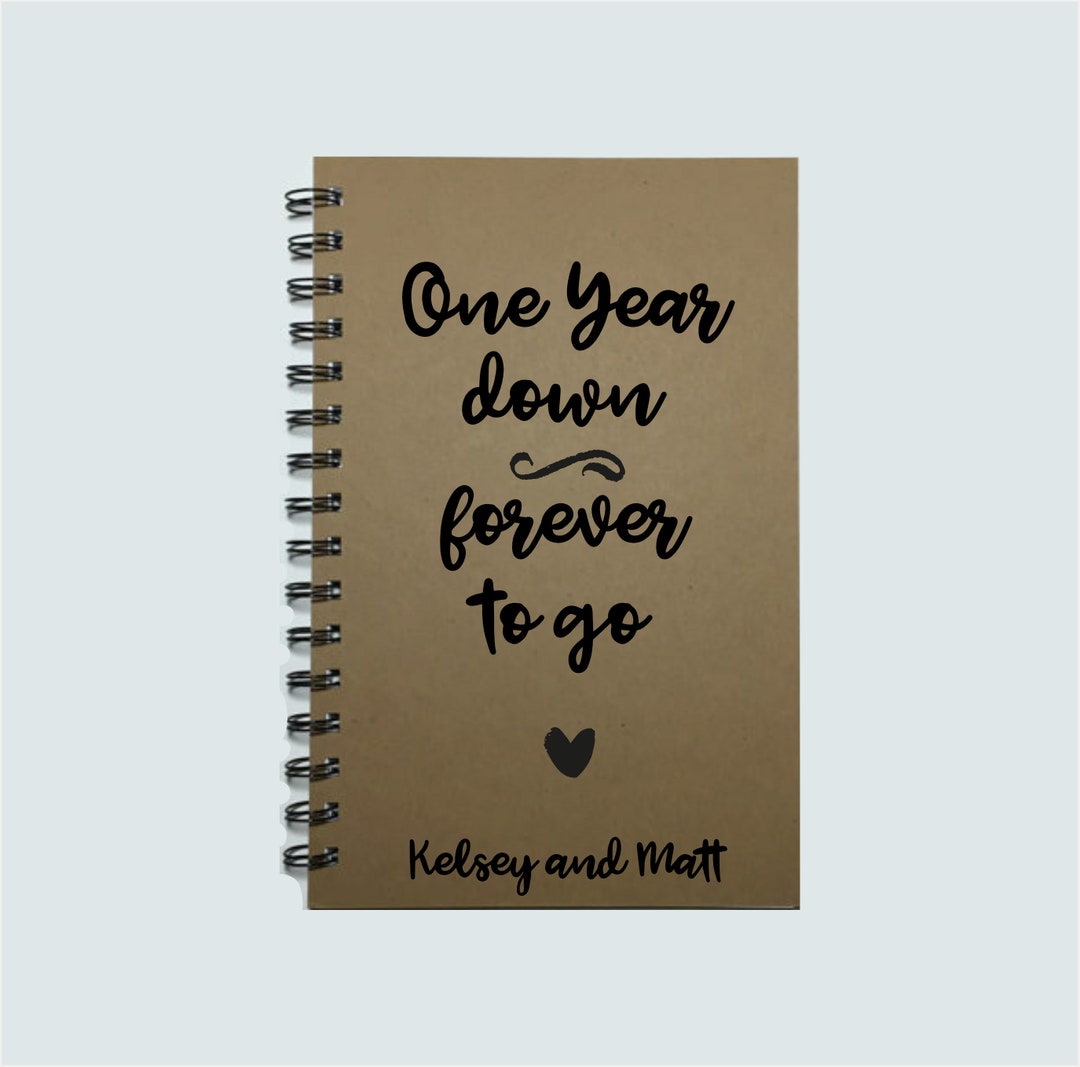 One Year
down
forever
to go
Kelsey and Matt